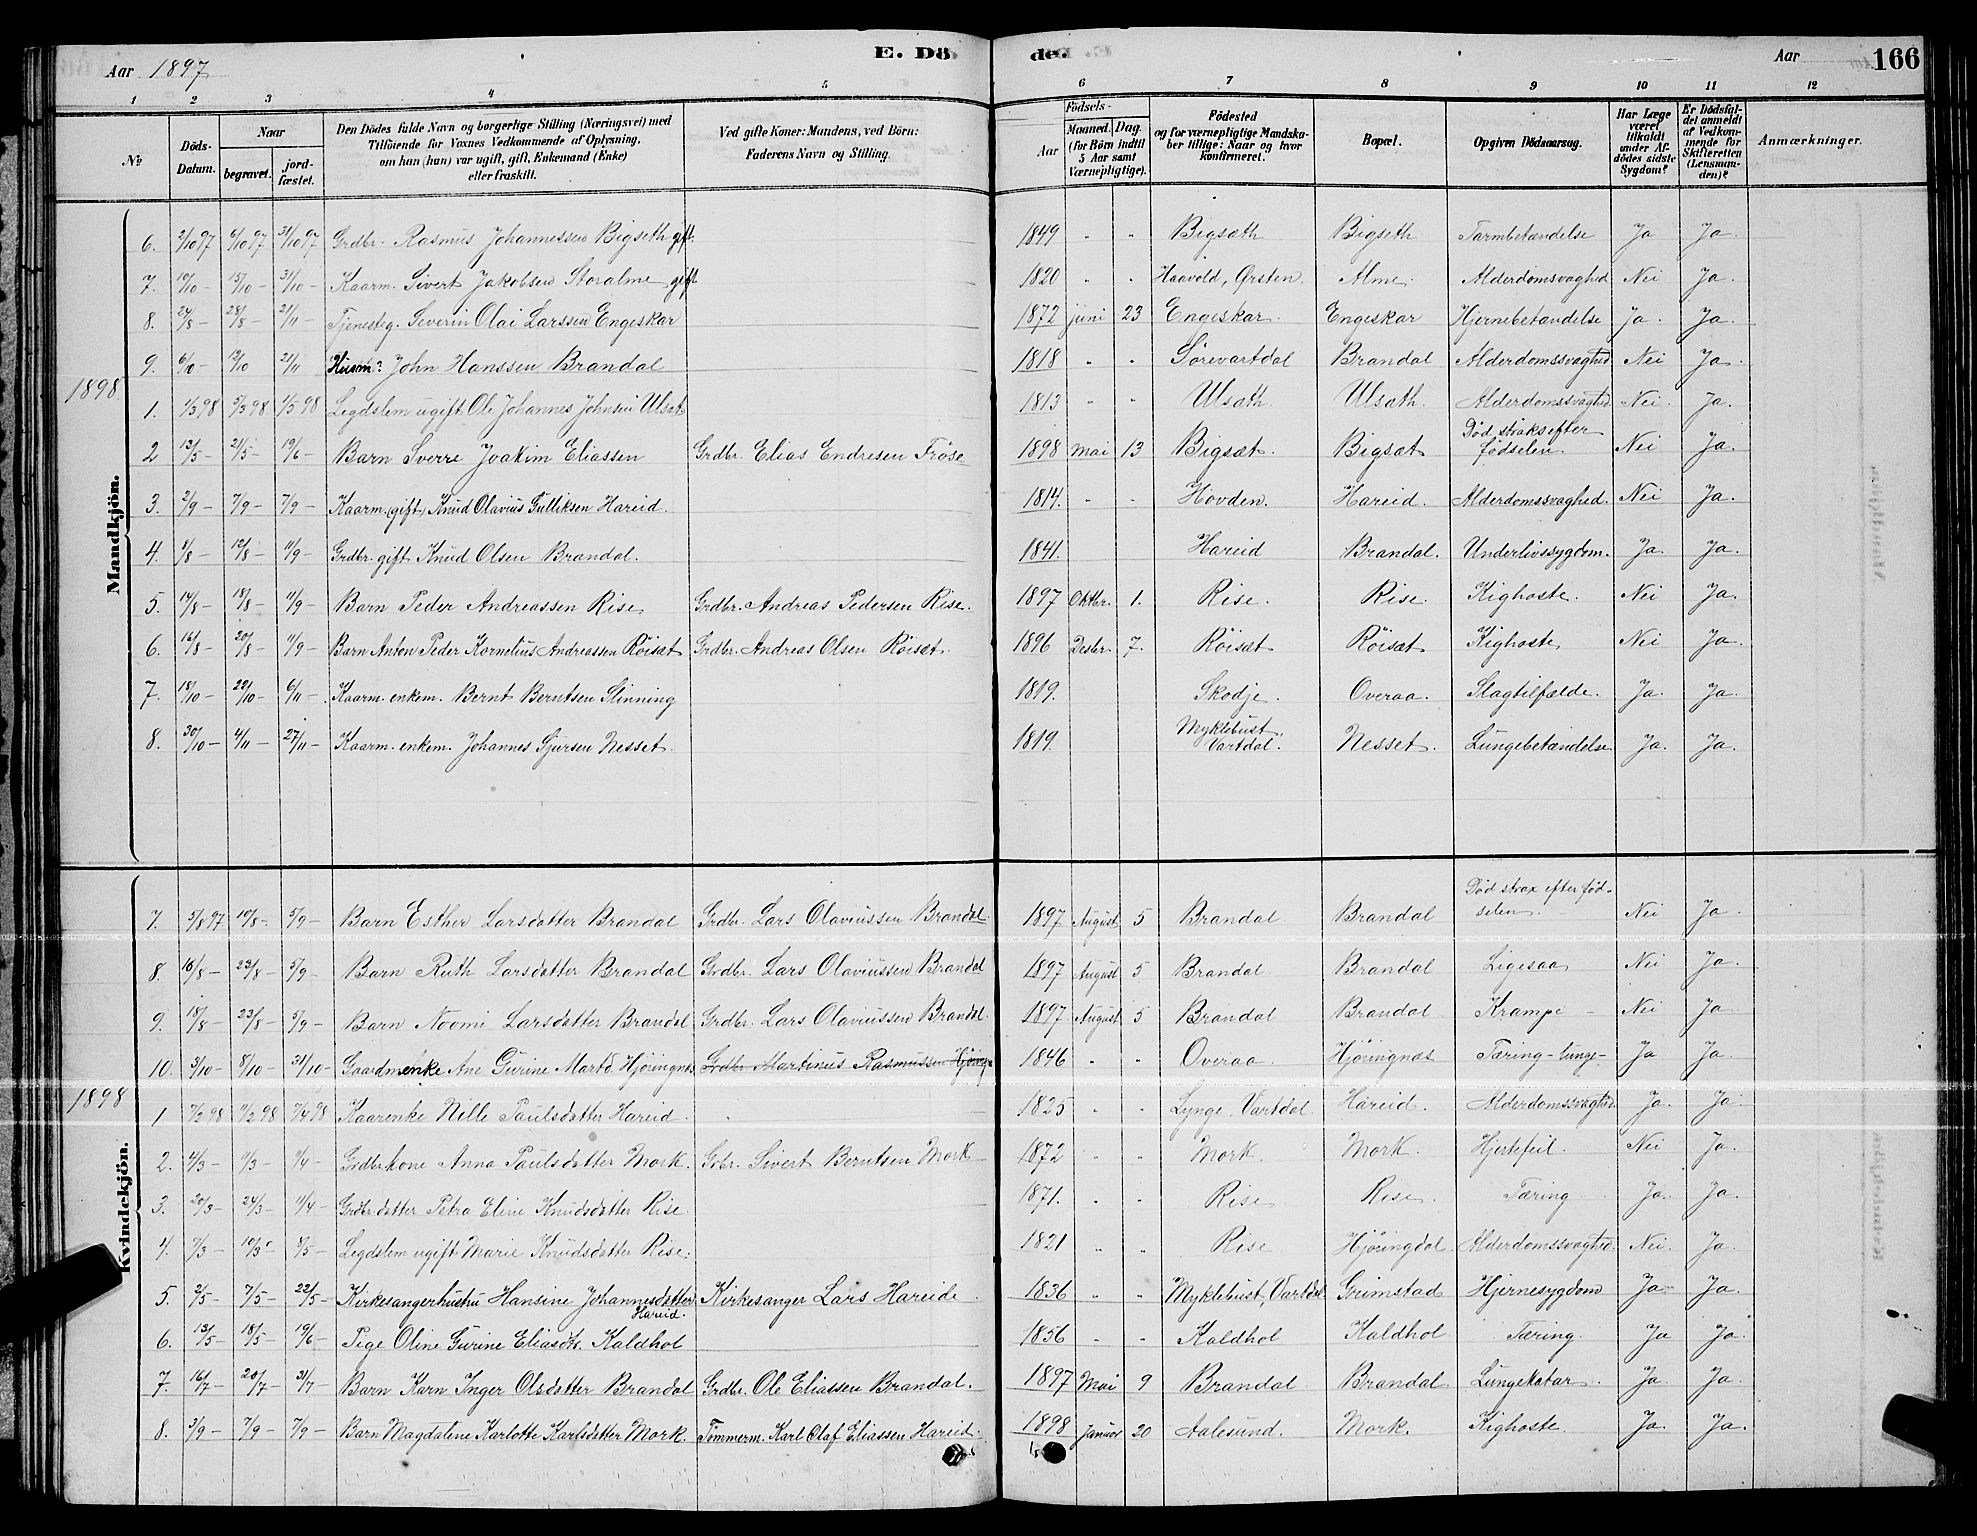 E. Döde.
Aar 1897
Aar 166
1 2 3 4 5 6 7 8 9 10 11 12
No
Döds-Datum.
Naar
begravet.
jordfæstet.
Den Dödes fulde Navn og borgerlige Stilling (Næringsvei) med Tilföiende for Voxnes Vedkommende af Oplysning, om han (hun) var ugift, gift, Enkemand (Enke) eller fraskilt.
Ved gifte Koner: Mandens, ved Börn: Faderens Navn og Stilling.
Födsels-
Aar
Maaned. Dag.
(for Börn indtil 5 Aar samt Værnepligtige).
Födested og for værnepligtige Mandskaber tillige: Naar og hvor konfirmeret.
Bopæl.
Opgiven Dödsaarsag.
Har Læge været tilkaldt under Afdödes sidste Sygdom?
Er Dödsfaldet anmeldt af Vedkommende for Skifteretten (Lensmanden)?
Anmærkninger.
Mandkjön.
6. 2/10 97 6/10 97 31/10 97 Grdbr. Rasmus Johannessen Bigseth gift. 1849 " " Bigsæth Bigseth Tarmbetændelse Ja Ja.
7. 10/10 - 15/10 - 31/10 - Kaarm. Sivert Jakobsen Storalme gift 1820 " " Haavold, Ørsten. Alme. Alderdomsvaghed Nei Ja.
8. 24/8 - 28/8 - 21/11 - Tjenesteg. Severin Olai Larssen Engeskar 1872 juni 23 Engeskar. Engeskar Hjernebetændelse Ja. Ja.
9. 6/10 - 12/10 21/11 Husm? John Hanssen Brandal 1818 " " Sörevartdal Brandal Alderdomssvaghed Nei Ja.
1898
1. 1/3 98 5/3 98 1/5 98 Legdslem ugift Ole Johannes Johnsen Ulsæt 1813 " " Ulsæth. Ulsæth. Alderdomssvaghed Nei. Ja.
2 13/5 - 21/5 - 19/6 - Barn Sverre Joakim Eliassen Grdbr. Elias Endresen Fröse 1898 Mai 13 Bigsæt. Bigsæt Död straks efter födselen. Nei Ja.
3. 2/9 - 7/9 - 7/9 - Kaarm. (gift) Knud Olavius Gulliksen Hareid. 1814. " " Hovden. Hareid. Alderdomssvaghed. Nei Ja.
4. 1/8 - 12/8 - 11/9 - Grdbr. gift Knud Olsen Brandal. 1841. Hareid Brandal. Underlivssygdom. Ja Ja.
5. 14/8 - 18/8 - 11/9 - Barn Peder Andreassen Rise. Grdbr. Andreas Pedersen Rise. 1897 Oktbr. 1. Rise. Rise. Kighoste. Nei Ja.
6. 16/8 - 20/8 - 11/9 - Barn Anton Peder Kornelius Andreassen Röisæt Grdbr. Andreas Olsen Röisæt. 1896 Desbr. 7. Röisæt Röisæt Kighoste Nei Ja.
7. 18/10 - 22/10 - 6/11 - Kaarm. enkem. Bernt Berntsen Slinning 1819. Skodje. Overaa. Slagtilfælde. Ja. Ja.
8. 30/10 - 4/11 - 27/11 - Kaarm. enkem. Johannes Sjursen Nesset. 1819. Myklebust, Vartdal. Nesset. Lungebetændelse Ja. Ja.
Kvindekjön.
7. 5/8 97 10/8 - 5/9 - Barn Esther Larsdatter Brandal Grdbr. Lars Olaviussen Brandal. 1897 August 5 Brandal Brandal Död strax efter födselen. Nei Ja.
8. 16/8 - 23/8 - 5/9 - Barn Ruth Larsdatter Brandal Grdbr. Lars Olaviussen Brandal 1897 August 5. Brandal Brandal Ligesaa Nei Ja.
9. 18/8 - 23/8 - 5/9 - Barn Noomi Larsdatter Brandal Grdbr. Lars Olaviussen Brandal. 1897 August 5 Brandal Brandal Krampe - Nei Ja.
10. 3/10 - 8/10 - 31/10 - Gaardmenke Ane Gurine Martd. Hjöringnes. Grdbr. Martinus Rasmussen Hjöringn 1846 " " Overaa. Hjöringnæs Tæring - lunge - Ja Ja.
1898
1 7/2 98 11/2 98 7/4 98 Kaarenke Nille Paulsdatter Hareid. 1825 " " Lynge, Vartdal. Hareid. Alderdomssvaghed Ja. Ja.
2. 4/3 - 11/3 - 11/4 - Grdbrkone Anna Paulsdatter Mork. Grbr. Sivert Berntsen Mork 1872 " " Mork. Mork. Hjertefeil. Nei Ja.
3. 20/3 - 24/3 - 11/4 - Grdbrdatter Petra Eline Knudsdatter Rise. 1871. " " Rise. Rise. Tæring Ja. Ja.
4. 7/3 - 10/3 - 8/5 - Legdslem ugift Marie Knudsdatter Rise. 1821 " " Rise Hjöringdal. Alderdomssvaghed. Nei. Ja.
5. 2/5 - 7/5 - 22/5 - Kirkesangerhustru Hansine Johannesdatter Hareid. Kirkesanger Lars Hareide. 1836 " " Myklebust, Vartdal Grimstad Hjernesygdom Ja - Ja.
6. 13/5 - 18/5 - 19/6 - Pige Oline Gurine Eliasdtr. Kaldhol 1856 " " Kaldhol Kaldhol Tæring. Ja Ja.
7. 16/7 - 20/7 - 31/7 - Barn Karn Inger Olsdatter Brandal Grdbr. Ole Eliassen Brandal. 1897 Mai 9 Brandal Brandal. Lungekatar. Ja. Ja.
8. 3/9 - 7/9 - 7/9 - Barn Magdalene Karlotte Karlsdatter Mork. Tömmerm. Karl Olaf Eliassen Hareid. 1898 Januar 20 Aalesund. Mork. Kighoste. Ja. Ja.